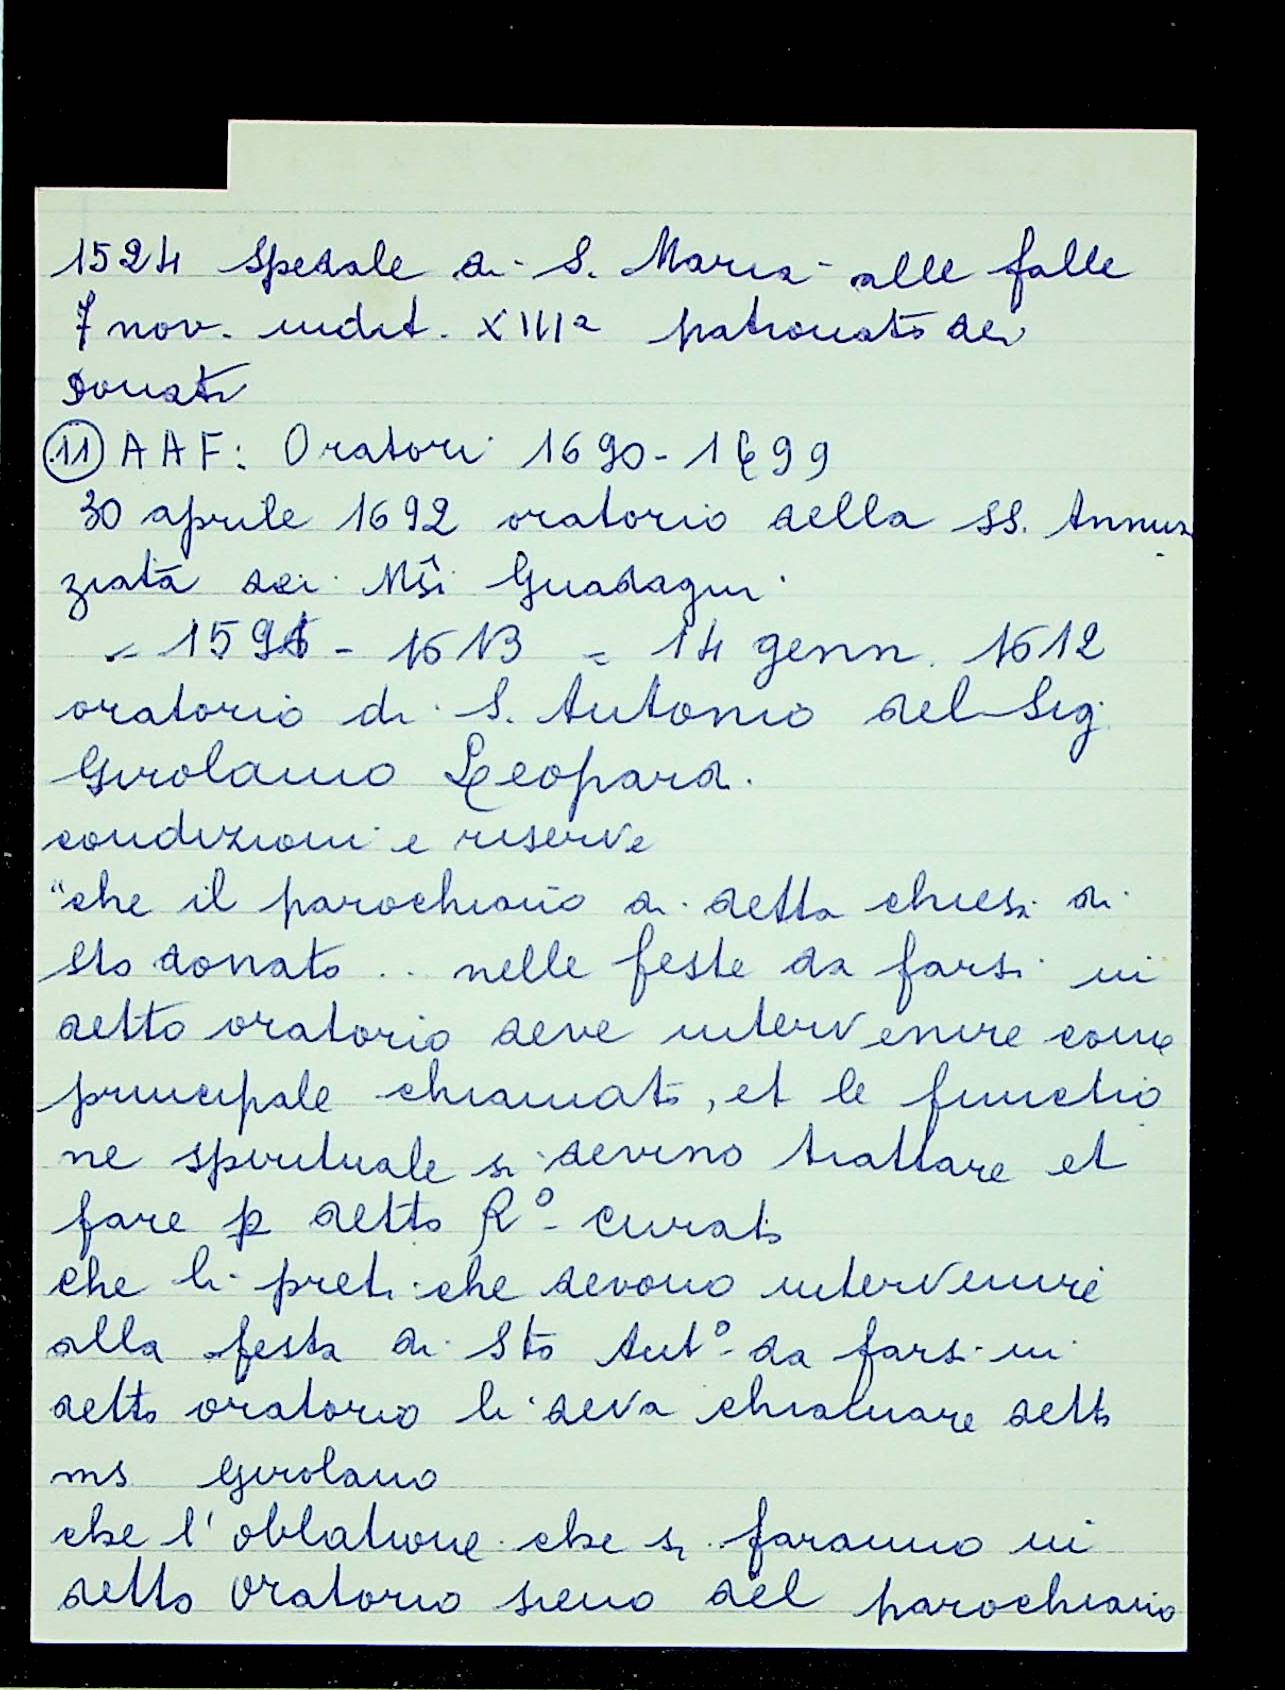 1524 Spedale di S. Maria alle falle
7 nov. indit. XIIIa patronato dei
Donati
11 AAF: Oratori 1690-1699
30 aprile 1692 oratorio della SS. Annun
ziata dei Mŝi Guadagni
= 1591 - 1613 = 14 genn. 1612
oratorio di S. Antonio del Sig.
Girolamo Leopardi.
condizioni e riserve
"che il parochiano di detta chiesa di
Sto donato .. nelle feste da farsi in
detto oratorio deve intervenire come
principale chiamato, et le functio
ne spirituale si devino trattare et
fare p detto Rº curato
che li preti che devono intervenire
alla festa di Sto Antº da farsi in
detto oratorio li deva chiamare detto
ms Girolamo
che l'oblatione che si faranno in
detto oratorio sieno del parochiano